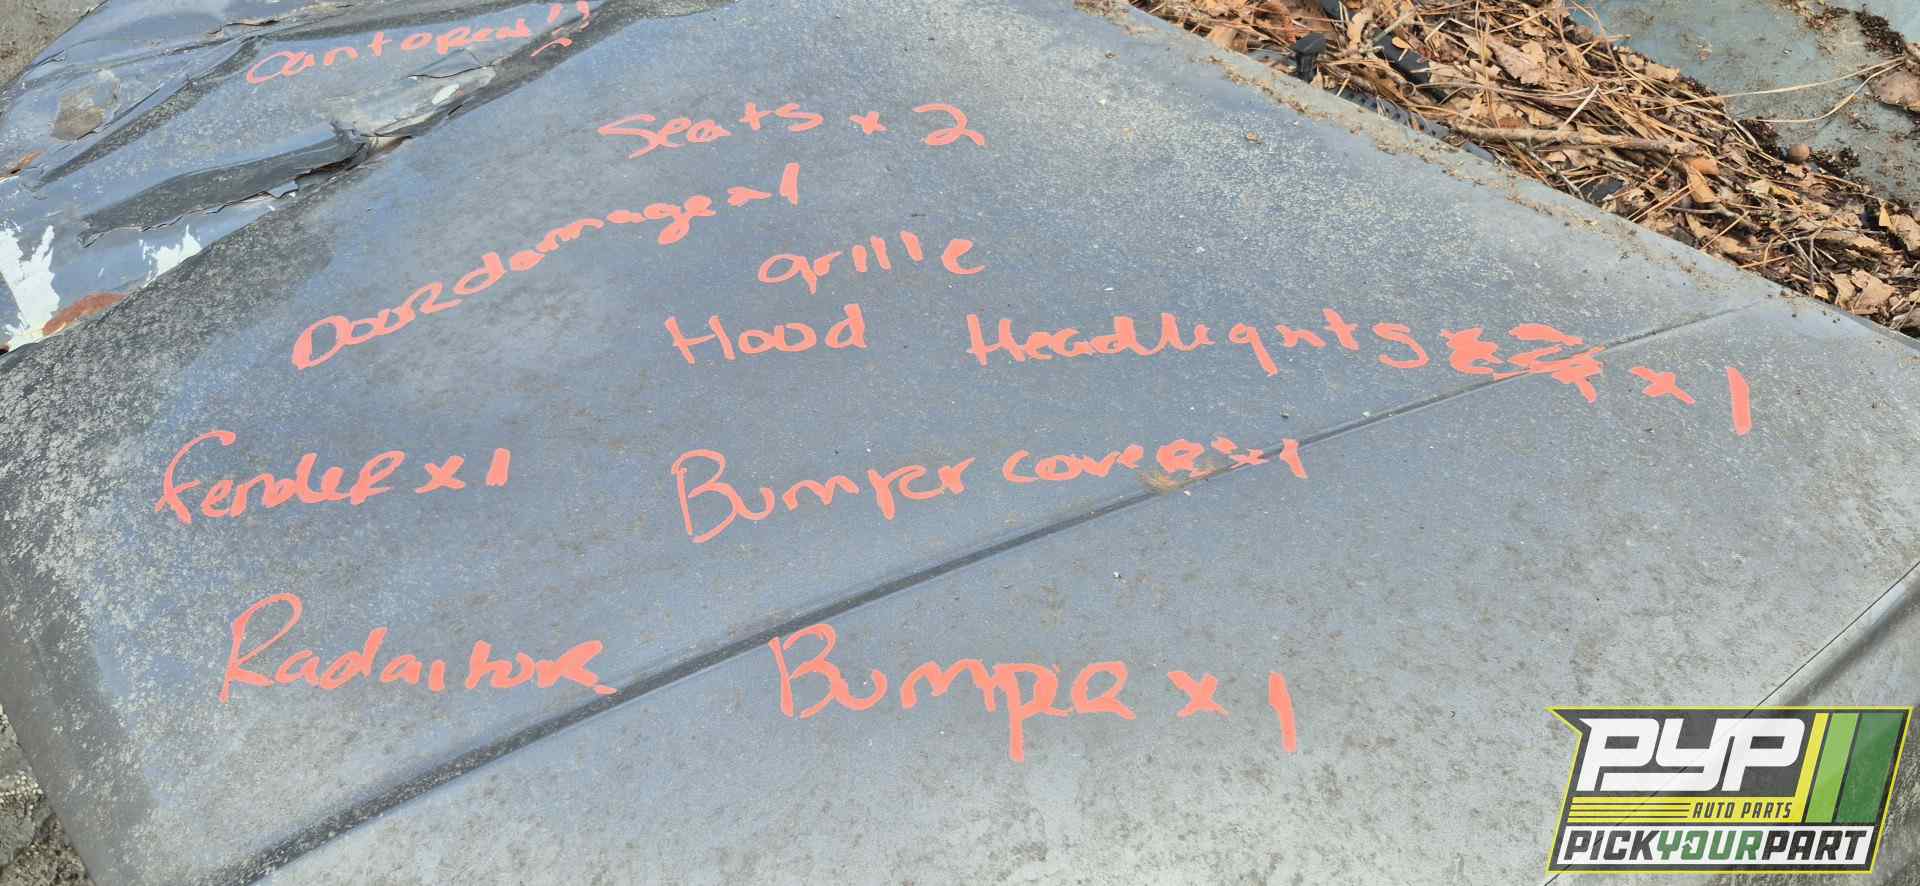 Cantopen!!
Seats x 2
Doordamage x 1
grille
Hood Headlights x 1
fender x 1 Bumper cover x 1
Radaitor Bumper x 1
PYP
AUTO PARTS
PICKYOURPART